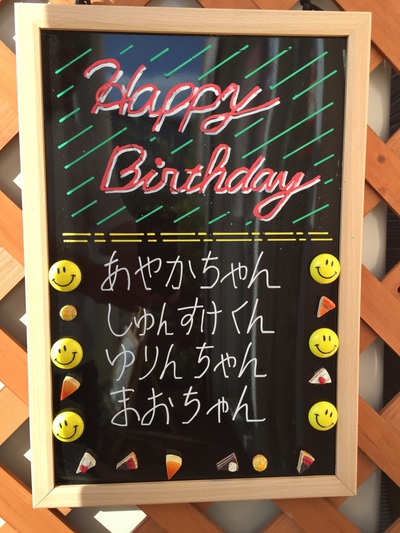 Happy
Birthday
あやかちゃん
しゅんすけくん
ゆりんちゃん
まおちゃん